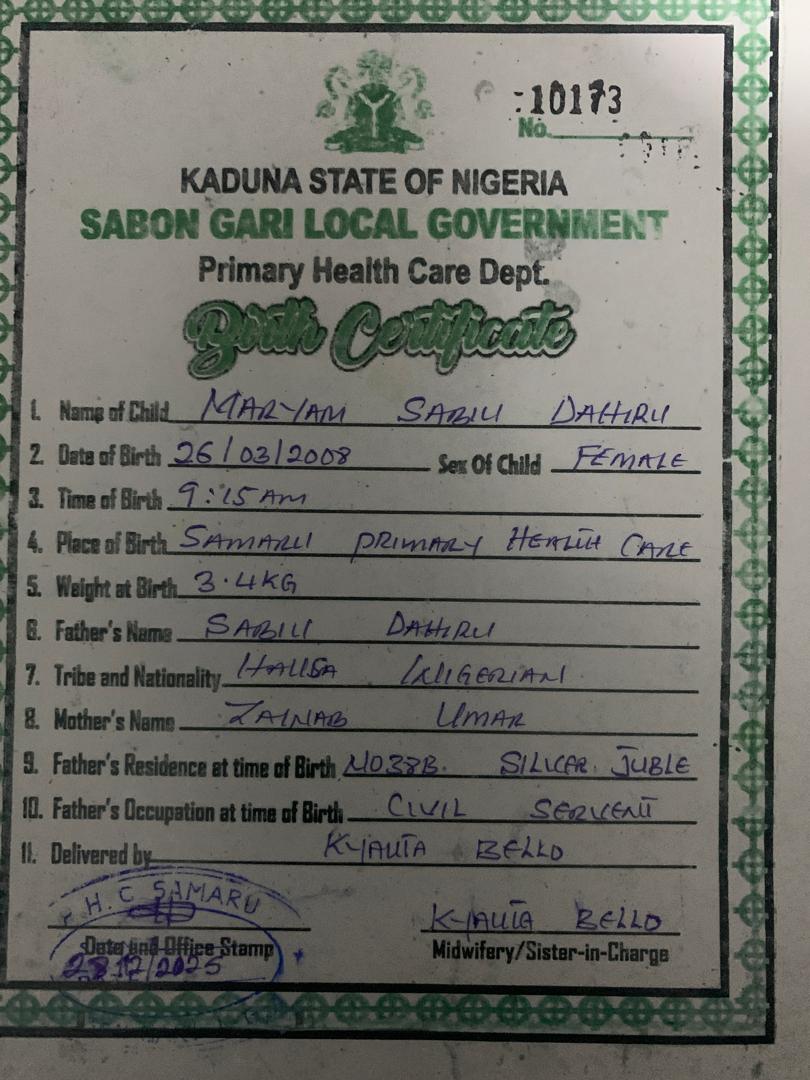 :10173
No.
KADUNA STATE OF NIGERIA
SABON GARI LOCAL GOVERNMENT
Primary Health Care Dept.
Birth Certificate
1. Name of Child MARYAM SABIU DAHIRU
2. Date of Birth 26/03/2008 Sex Of Child FEMALE
3. Time of Birth 9:15AM
4. Place of Birth SAMARU PRIMARY HEALTH CARE
5. Weight at Birth 3.4KG
6. Father's Name SABIU DAHIRU
7. Tribe and Nationality HAUSA NIGERIAN
8. Mother's Name ZAINAB UMAR
9. Father's Residence at time of Birth NO38B. SILVER JUBLE
10. Father's Occupation at time of Birth CIVIL SERVENT
11. Delivered by KYAUTA BELLO
H.C SAMARU
KYAUTA BELLO
Date and Office Stamp Midwifery/Sister-in-Charge
28 12/2025